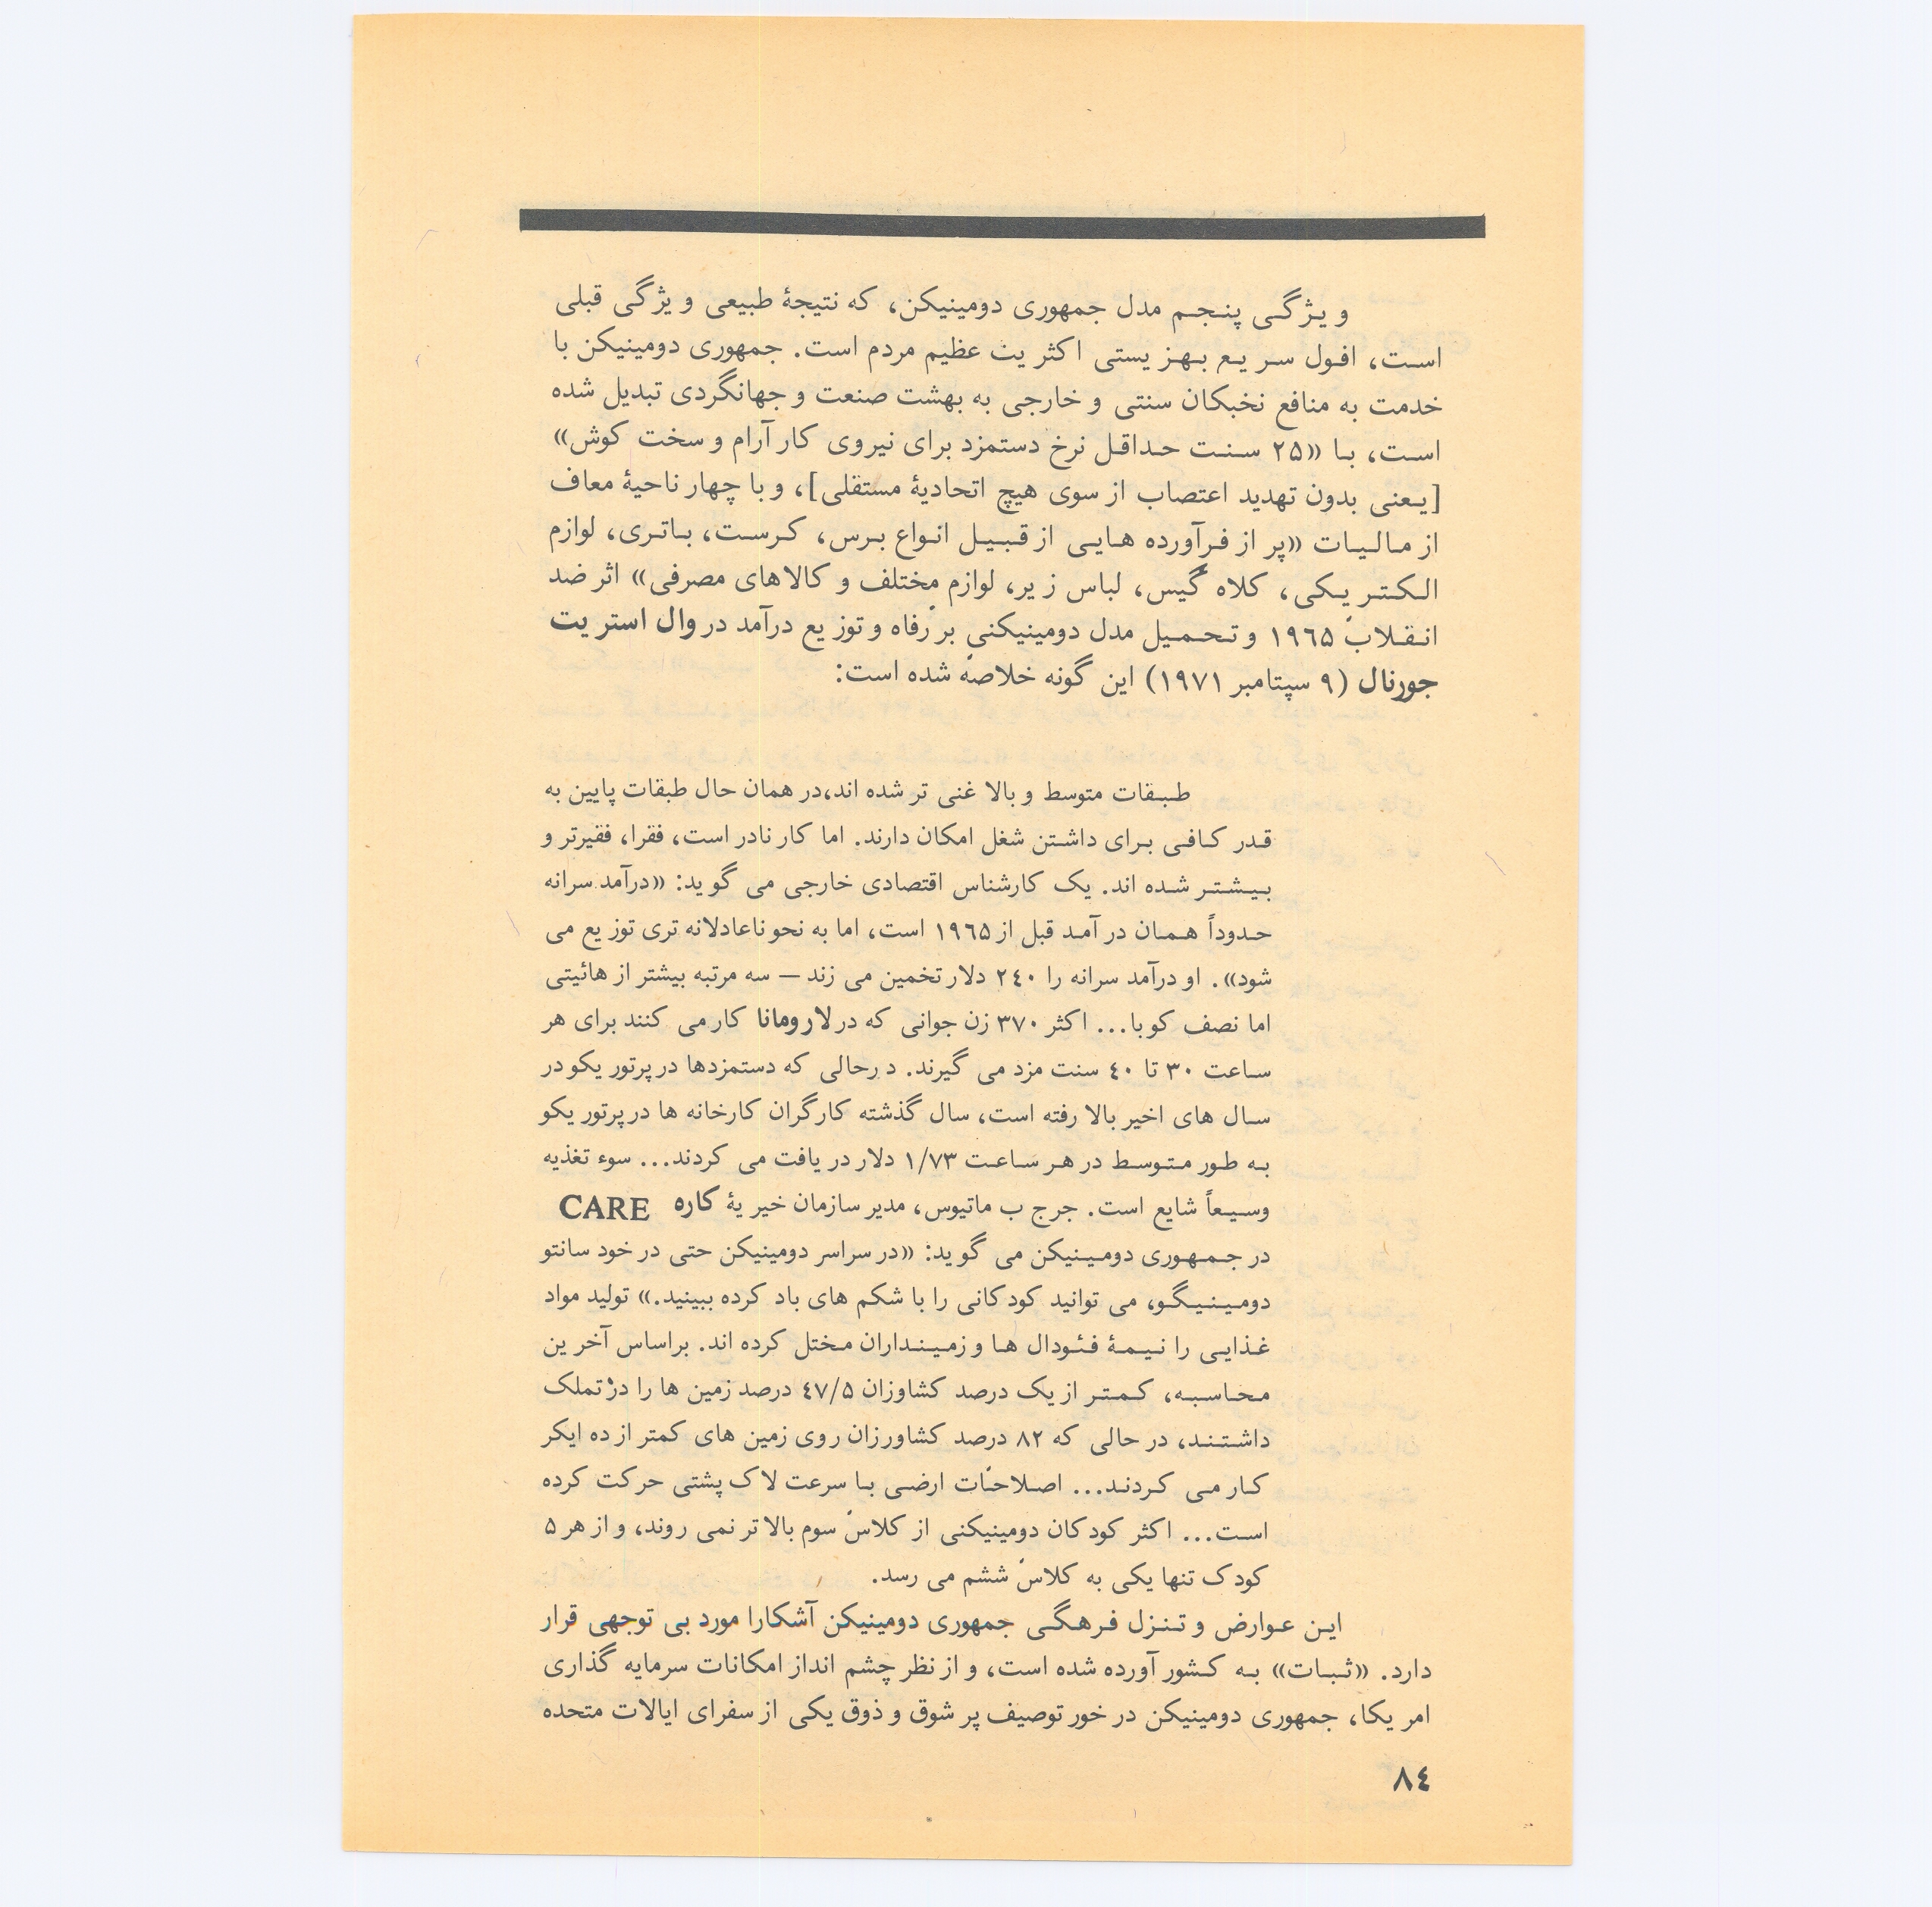 ویژگی پنجم مدل جمهوری دومینیکن، که نتیجهٔ طبیعی ویژگی قبلی
است، افول سریع بهزیستی اکثریت عظیم مردم است. جمهوری دومینیکن با
خدمت به منافع نخبکان سنتی و خارجی به بهشت صنعت و جهانگردی تبدیل شده
است، با «۲۵ سنت حداقل نرخ دستمزد برای نیروی کار آرام و سخت کوش»
[یعنی بدون تهدید اعتصاب از سوی هیچ اتحادیهٔ مستقلی]، و با چهار ناحیهٔ معاف
از مالیات «پر از فرآورده هایی از قبیل انواع برس، کرست، باتری، لوازم
الکتریکی، کلاه گیس، لباس زیر، لوازم مختلف و کالاهای مصرفی» اثر ضد
انقلاب ۱۹٦۵ و تحمیل مدل دومینیکنی بر رفاه و توزیع درآمد در وال استریت
جورنال (۹ سپتامبر ۱۹۷۱) این گونه خلاصه شده است:
طبقات متوسط و بالا غنی تر شده اند، در همان حال طبقات پایین به
قدر کافی برای داشتن شغل امکان دارند. اما کار نادر است، فقرا، فقیرتر و
بیشتر شده اند. یک کارشناس اقتصادی خارجی می گوید: «درآمد سرانه
حدوداً همان درآمد قبل از ۱۹٦۵ است، اما به نحو ناعادلانه تری توزیع می
شود». او درآمد سرانه را ۲٤۰ دلار تخمین می زند — سه مرتبه بیشتر از هائیتی
اما نصف کوبا... اکثر ۳۷۰ زن جوانی که در لارومانا کار می کنند برای هر
ساعت ۳۰ تا ٤۰ سنت مزد می گیرند. درحالی که دستمزدها در پرتوریکو در
سال های اخیر بالا رفته است، سال گذشته کارگران کارخانه ها در پرتوریکو
به طور متوسط در هر ساعت ۱/۷۳ دلار دریافت می کردند... سوء تغذیه
وسیعاً شایع است. جرج ب ماتیوس، مدیر سازمان خیریهٔ کاره CARE
در جمهوری دومینیکن می گوید: «در سراسر دومینیکن حتی در خود سانتو
دومینیگو، می توانید کودکانی را با شکم های باد کرده ببینید.» تولید مواد
غذایی را نیمهٔ فئودال ها و زمینداران مختل کرده اند. براساس آخرین
محاسبه، کمتر از یک درصد کشاوزان ٤۷/۵ درصد زمین ها را در تملک
داشتند، در حالی که ۸۲ درصد کشاورزان روی زمین های کمتر از ده ایکر
کار می کردند... اصلاحات ارضی با سرعت لاک پشتی حرکت کرده
است... اکثر کودکان دومینیکنی از کلاس سوم بالا تر نمی روند، و از هر ۵
کودک تنها یکی به کلاس ششم می رسد.
این عوارض و تنزل فرهگی جمهوری دومینیکن آشکارا مورد بی توجهی قرار
دارد. «ثبات» به کشور آورده شده است، و از نظر چشم انداز امکانات سرمایه گذاری
امریکا، جمهوری دومینیکن در خور توصیف پر شوق و ذوق یکی از سفرای ایالات متحده
۸٤